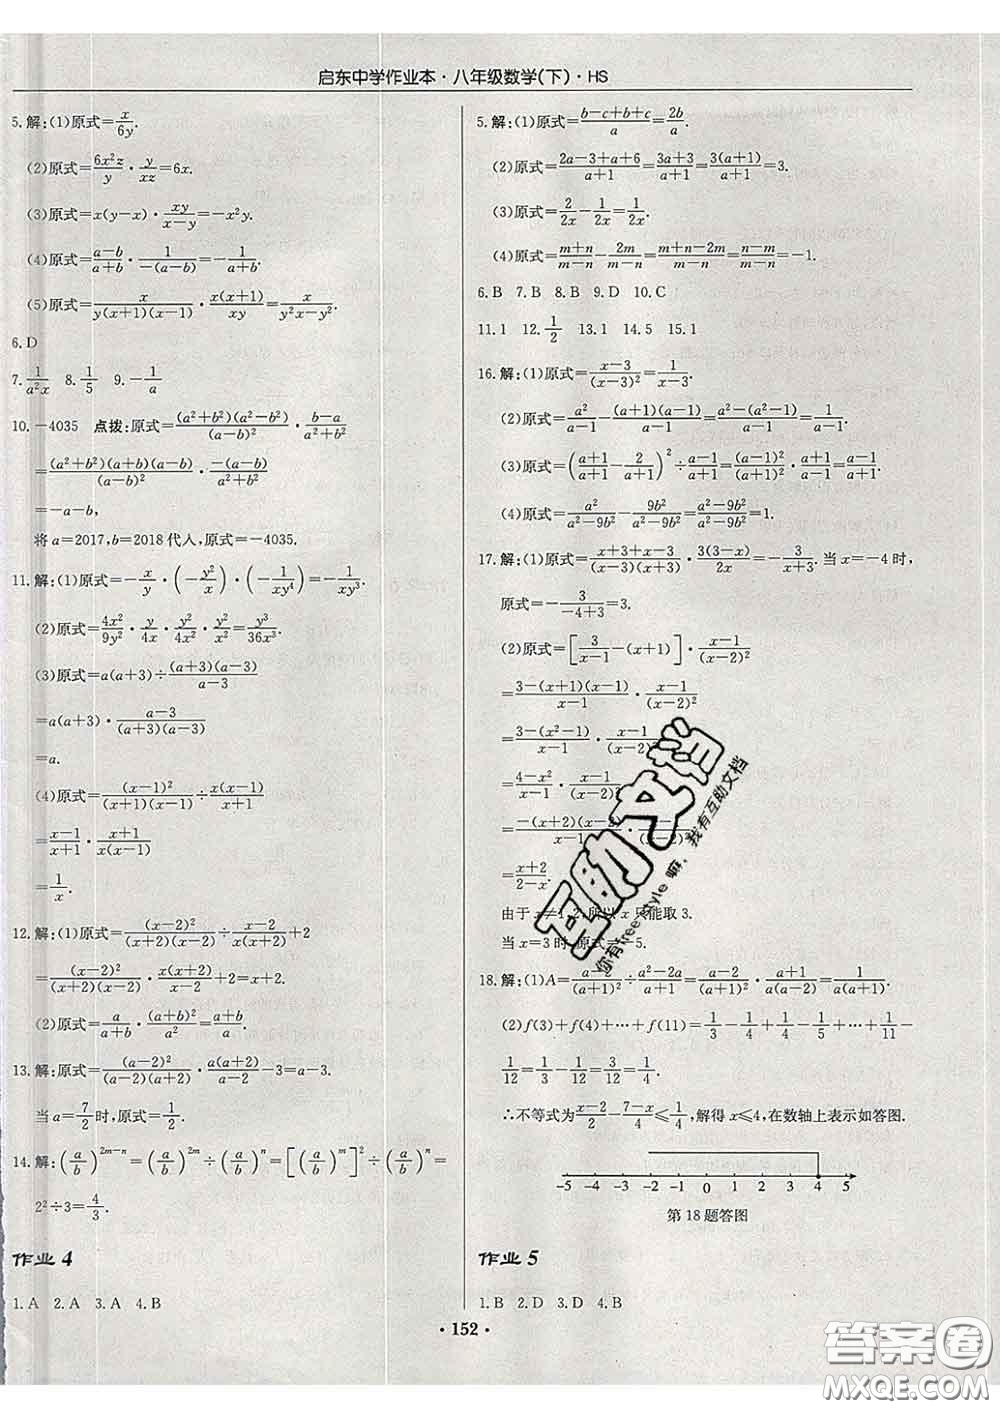 启东中学作业本·八年级数学(下)·HS
5.解:(1)原式=x/6y.
(2)原式=6x²z/y·y/xz=6x.
(3)原式=x(y-x)·xy/(x-y)=-x²y.
(4)原式=(a-b)/(a+b)·1/-(a-b)=-1/(a+b).
(5)原式=x/(y(x+1)(x-1))·x(x+1)/xy=x/(y²x-y²).
6.D
7.1/a²x 8.1/5 9.-1/a
10.-4035 点拨:原式=(a²+b²)(a²-b²)/(a-b)²·(b-a)/(a²+b²)
=(a²+b²)(a+b)(a-b)/(a-b)²·-(a-b)/(a²+b²)
=-a-b,
将a=2017,b=2018代人,原式=-4035.
11.解:(1)原式=-x/y·(-y²/x)·(-1/xy⁴)=-1/xy³.
(2)原式=4x²/9y²·y/4x·y²/4x·y²/x²=y³/36x³.
(3)原式=a(a+3)÷(a+3)(a-3)/(a-3)
=a(a+3)·(a-3)/((a+3)(a-3))
=a.
(4)原式=(x-1)²/((x+1)(x-1))÷x(x-1)/(x+1)
=(x-1)/(x+1)·(x+1)/(x(x-1))
=1/x.
12.解:(1)原式=(x-2)²/((x+2)(x-2))÷(x-2)/(x(x+2))+2
=(x-2)²/((x+2)(x-2))·x(x+2)/(x-2)+2=x+2.
(2)原式=a/(a+b)·(a+b)²/a²=(a+b)/a.
13.解:原式=(a-2)²/((a-2)(a+2))·a(a+2)/(a-2)-3=a-3.
当a=7/2时,原式=1/2.
14.解:(a/b)^(2m-n)=(a/b)^(2m)÷(a/b)^n=[(a/b)^m]²÷(a/b)^n=
2²÷3=4/3.
作业 4
1.A 2.A 3.A 4.B
5.解:(1)原式=(b-c+b+c)/a=2b/a.
(2)原式=(2a-3+a+6)/(a+1)=(3a+3)/(a+1)=3(a+1)/(a+1)=3.
(3)原式=2/2x-1/2x=1/2x.
(4)原式=(m+n)/(m-n)-2m/(m-n)=(m+n-2m)/(m-n)=(n-m)/(m-n)=-1.
6.B 7.B 8.B 9.D 10.C
11.1 12.1/2 13.1 14.5 15.1
16.解:(1)原式=(x-3)/(x-3)²=1/(x-3).
(2)原式=a²/(a-1)-(a+1)(a-1)/(a-1)=(a²-(a²-1))/(a-1)=1/(a-1).
(3)原式=((a+1)/(a+1)-2/(a+1))²÷(a-1)/(a+1)=(a-1)²/(a+1)²·(a+1)/(a-1)=(a-1)/(a+1).
(4)原式=a²/(a²-9b²)-9b²/(a²-9b²)=(a²-9b²)/(a²-9b²)=1.
17.解:(1)原式=(x+3+x-3)/((x-3)(x+3))·3(3-x)/2x=-3/(x+3).当x=-4时,
原式=-3/(-4+3)=3.
(2)原式=[3/(x-1)-(x+1)]·(x-1)/(x-2)²
=(3-(x+1)(x-1))/(x-1)·(x-1)/(x-2)²
=(3-(x²-1))/(x-1)·(x-1)/(x-2)²
=(4-x²)/(x-1)·(x-1)/(x-2)²
=-(x+2)(x-2)/(x-1)·
=(x+2)/(2-x).
由于x≠1,2,所以x只能取3.
当x=3时,原式=-5.
18.解:(1)A=(a-2)/(a+1)²÷(a²-2a)/(a+1)=(a-2)/(a+1)²·(a+1)/(a(a-2))=1/(a(a+1)).
(2)f(3)+f(4)+…+f(11)=1/3-1/4+1/4-1/5+…+1/11-
1/12=1/3-1/12=3/12=1/4.
∴不等式为(x-2)/2-(7-x)/4≤1/4,解得x≤4,在数轴上表示如答图.
-5 -4 -3 -2 -1 0 1 2 3 4 5
第18题答图
作业 5
1.B 2.D 3.D 4.B
·152·
互助文档
你有free-style嘛,我有互助文档
答案圈
MXQE.COM